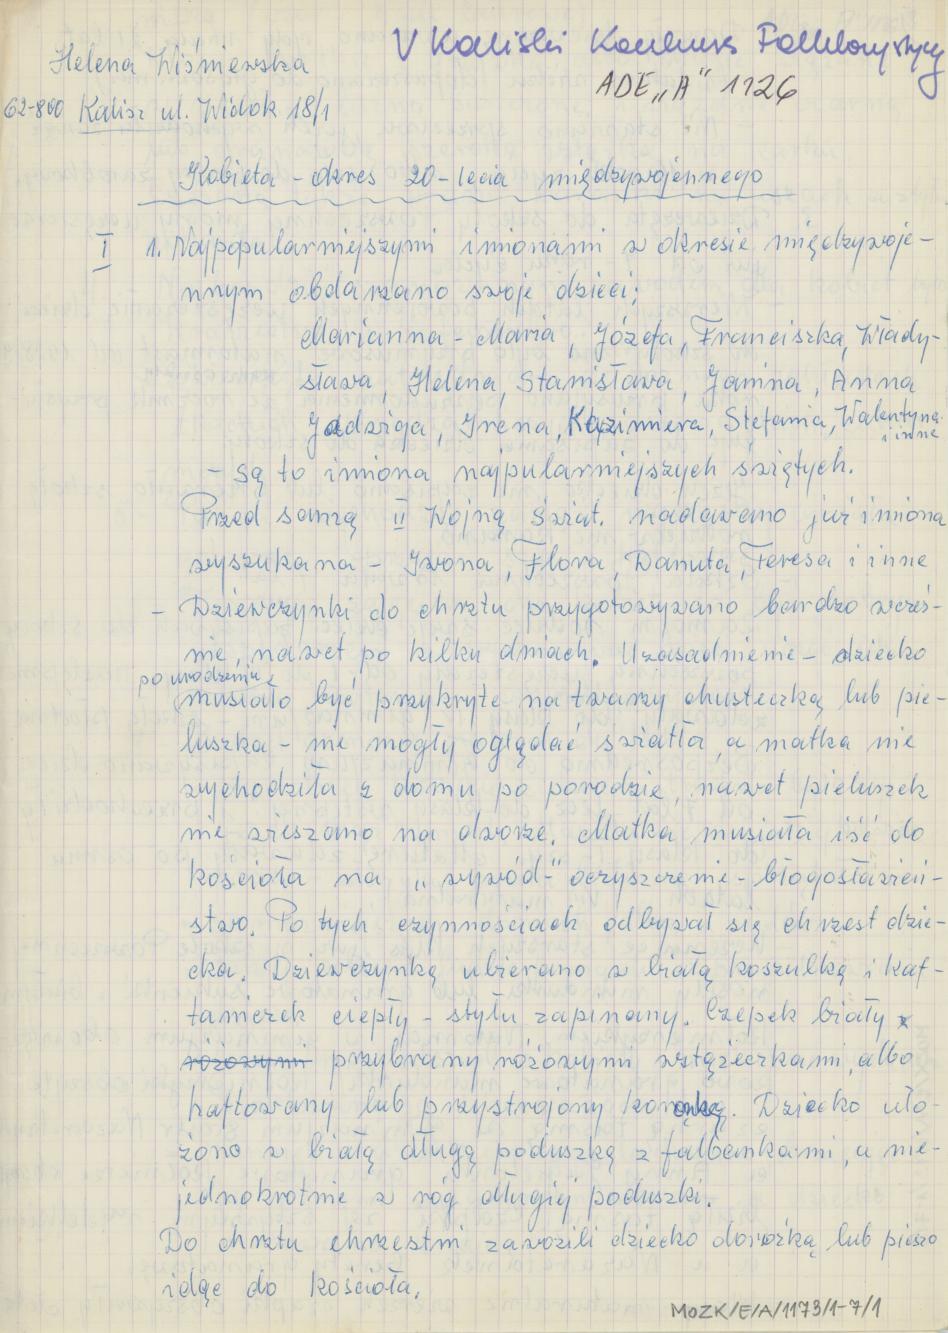 V Kaliski Konkurs Folklorystyczny
Helena Wiśniewska
ADE „A” 1126
62-800 Kalisz ul. Widok 18/1
Kobieta - okres 20-lecia międzywojennego
I 1. Najpopularniejszymi imionami w okresie międzywoje-
nnym obdarzano swoje dzieci;
Marianna - Maria, Józefa, Franciszka, Włady-
sława, Helena, Stanisława, Janina, Anna
Jadwiga, Irena, Kazimiera, Stefania, Walentyna
i inne
- są to imiona najpularniejszych świętych.
Przed samą II Wojną Świat. nadawano już imiona
wyszukana - Iwona, Flora, Danuta, Teresa i inne
- Dziewczynki do chrztu przygotowywano bardzo wcześ-
nie, nawet po kilku dniach. Uzasadnienie - dziecko
po urodzeniu
musiało być przykryte na twarzy chusteczką lub pie-
luszka - nie mogły oglądać światła, a matka nie
wychodziła z domu po porodzie, nawet pieluszek
nie wieszano na dworze. Matka musiała iść do
kościoła na „wywód-” oczyszczenie - błogosławień-
stwo. Po tych czynnościach odbywał się chrzest dzie-
cka. Dziewczynką ubierano w białą koszulką i kaf-
taniczek ciepły - z tyłu zapinany. Czepek biały
różowymi przybrany różowymi wstążeczkami, albo
haftowany lub przystrojony koronką. Dziecko uło-
żono w białą długą poduszką z falbankami, a nie-
jednokrotnie w róg długiej poduszki.
Do chrztu chrzestni zawozili dziecko dorożką lub pieszo
idąc do kościoła.
MOZK/E/A/1173/1-7/1